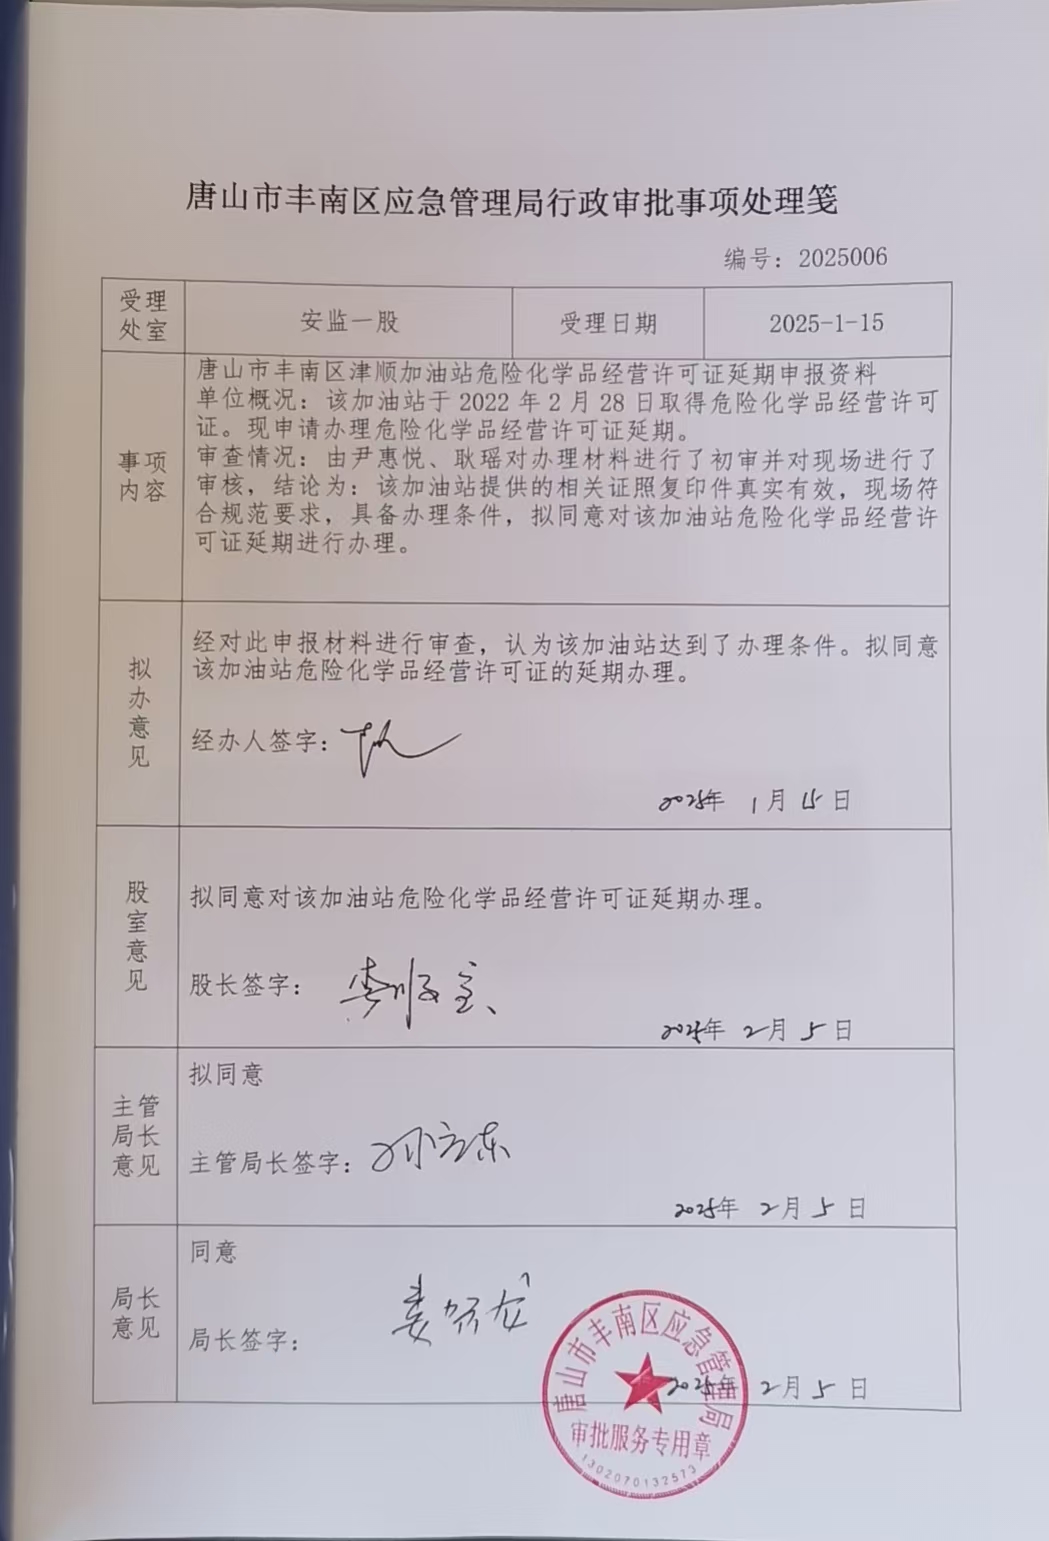 唐山市丰南区应急管理局行政审批事项处理笺
编号：2025006
受理
处室
安监一股
受理日期
2025-1-15
事项
内容
唐山市丰南区津顺加油站危险化学品经营许可证延期申报资料
单位概况：该加油站于 2022 年 2 月 28 日取得危险化学品经营许可
证。现申请办理危险化学品经营许可证延期。
审查情况：由尹惠悦、耿瑶对办理材料进行了初审并对现场进行了
审核，结论为：该加油站提供的相关证照复印件真实有效，现场符
合规范要求，具备办理条件，拟同意对该加油站危险化学品经营许
可证延期进行办理。
拟
办
意
见
经对此申报材料进行审查，认为该加油站达到了办理条件。拟同意
该加油站危险化学品经营许可证的延期办理。
经办人签字：
2025年 1月 15日
股
室
意
见
拟同意对该加油站危险化学品经营许可证延期办理。
股长签字：
2025年 2月 5日
主管
局长
意见
拟同意
主管局长签字：
2025年 2月 5日
局长
意见
同意
局长签字：
2025年 2月 5日
唐山市丰南区应急管理局
审批服务专用章
1302070132573